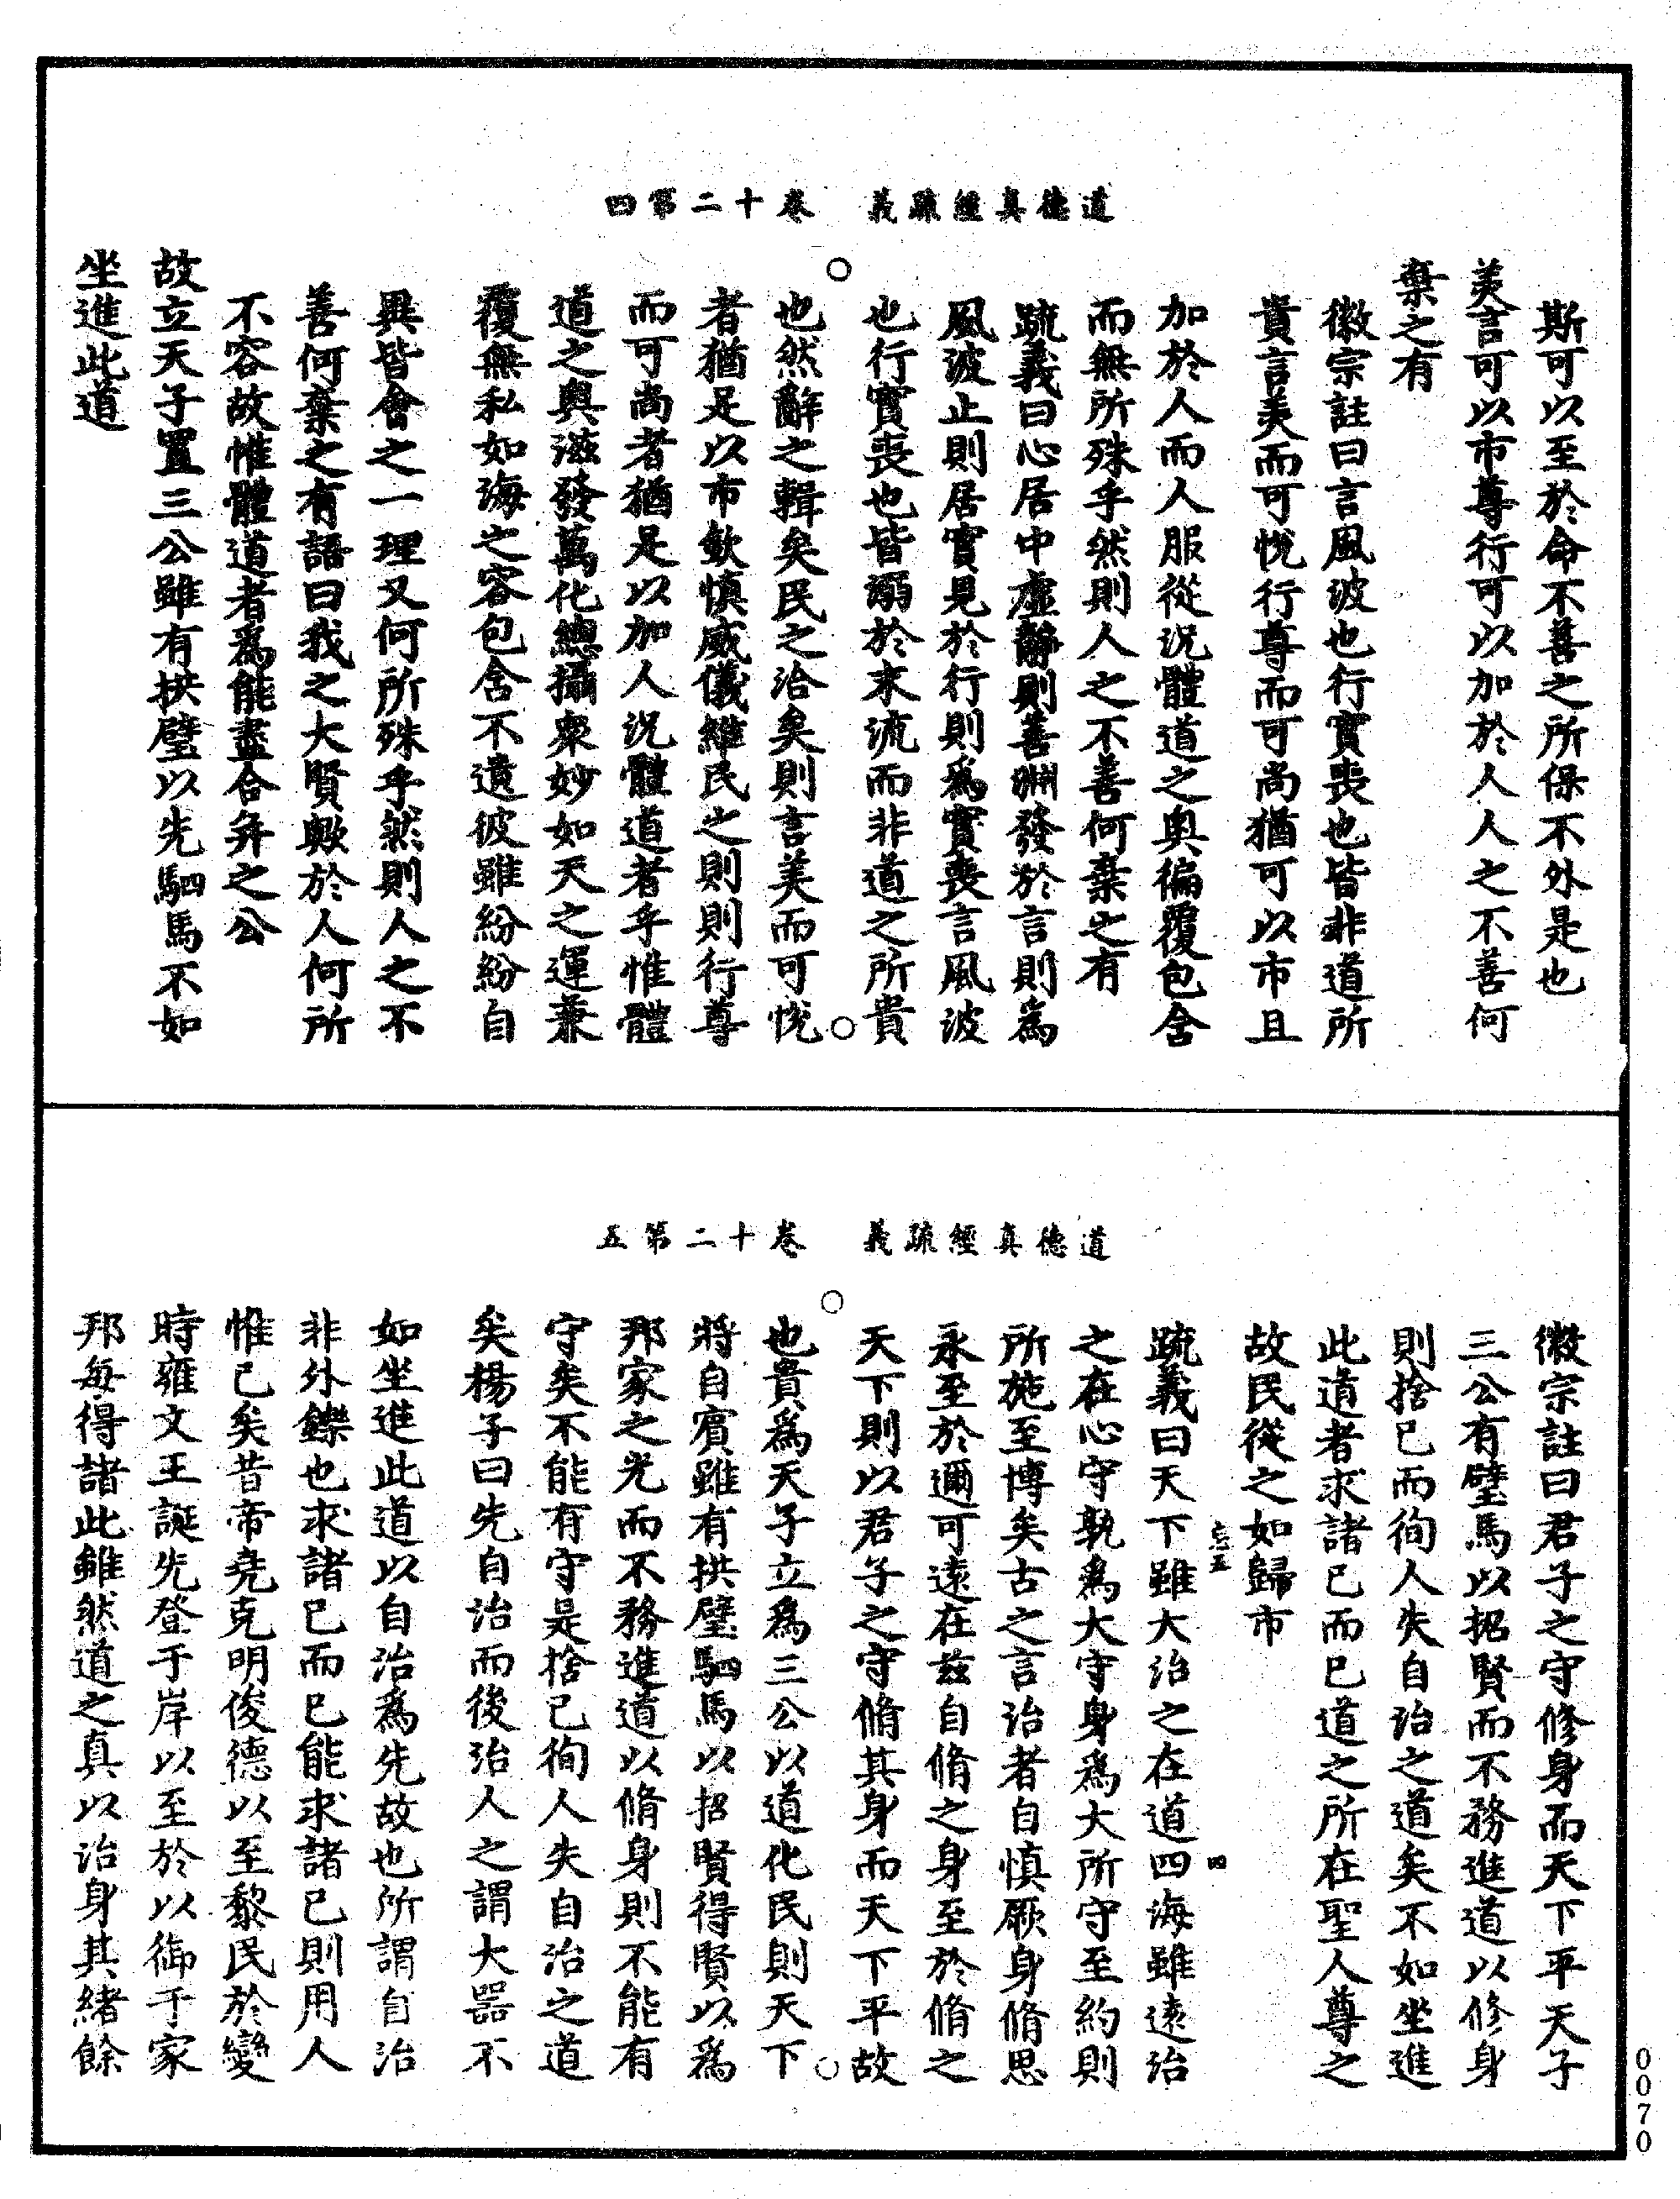 道德真經疏義　卷十二第四
斯可以至於命不善之所保不外是也
美言可以市尊行可以加於人人之不善何
棄之有
徽宗註曰言風波也行實喪也皆非道所
貴言美而可悅行尊而可尚猶可以市且
加於人而人服從況體道之奧徧覆包含
而無所殊乎然則人之不善何棄之有
疏義曰心居中虛靜則善淵發於言則為
風波止則居實見於行則為實喪言風波
也行實喪也皆溺於末流而非道之所貴
也然辭之輯矣民之洽矣則言美而可悅
者猶足以市欽慎威儀維民之則則行尊
而可尚者猶足以加人況體道者乎惟體
道之奧滋發萬化總攝衆妙如天之運兼
覆無私如海之容包含不遺彼雖紛紛自
異皆會之一理又何所殊乎然則人之不
善何棄之有語曰我之大賢歟於人何所
不容故惟體道者為能盡合弁之公
故立天子置三公雖有拱璧以先駟馬不如
坐進此道
道德真經疏義　卷十二第五
徽宗註曰君子之守修身而天下平天子
三公有璧馬以招賢而不務進道以修身
則捨己而徇人失自治之道矣不如坐進
此道者求諸己而已道之所在聖人尊之
故民從之如歸市
疏義曰天下雖大治之在道四海雖遠治
之在心守孰為大守身為大所守至約則
所施至博矣古之言治者自慎厥身脩思
永至於邇可遠在兹自脩之身至於脩之
天下則以君子之守脩其身而天下平故
也貴為天子立為三公以道化民則天下
將自賓雖有拱璧駟馬以招賢得賢以為
邦家之光而不務進道以脩身則不能有
守矣不能有守是捨己徇人失自治之道
矣楊子曰先自治而後治人之謂大器不
如坐進此道以自治為先故也所謂自治
非外鑠也求諸己而已能求諸己則用人
惟己矣昔帝堯克明俊德以至黎民於變
時雍文王誕先登于岸以至於以御于家
邦每得諸此雖然道之真以治身其緒餘
四
0070